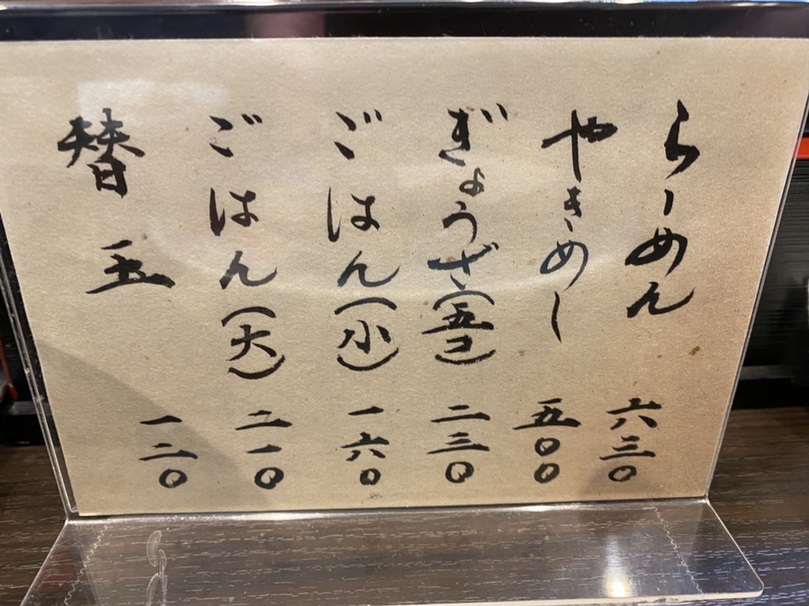 らーめん 六三〇
やきめし 五〇〇
ぎょうざ(五コ) 二三〇
ごはん(小) 一六〇
ごはん(大) 二一〇
替玉 一二〇